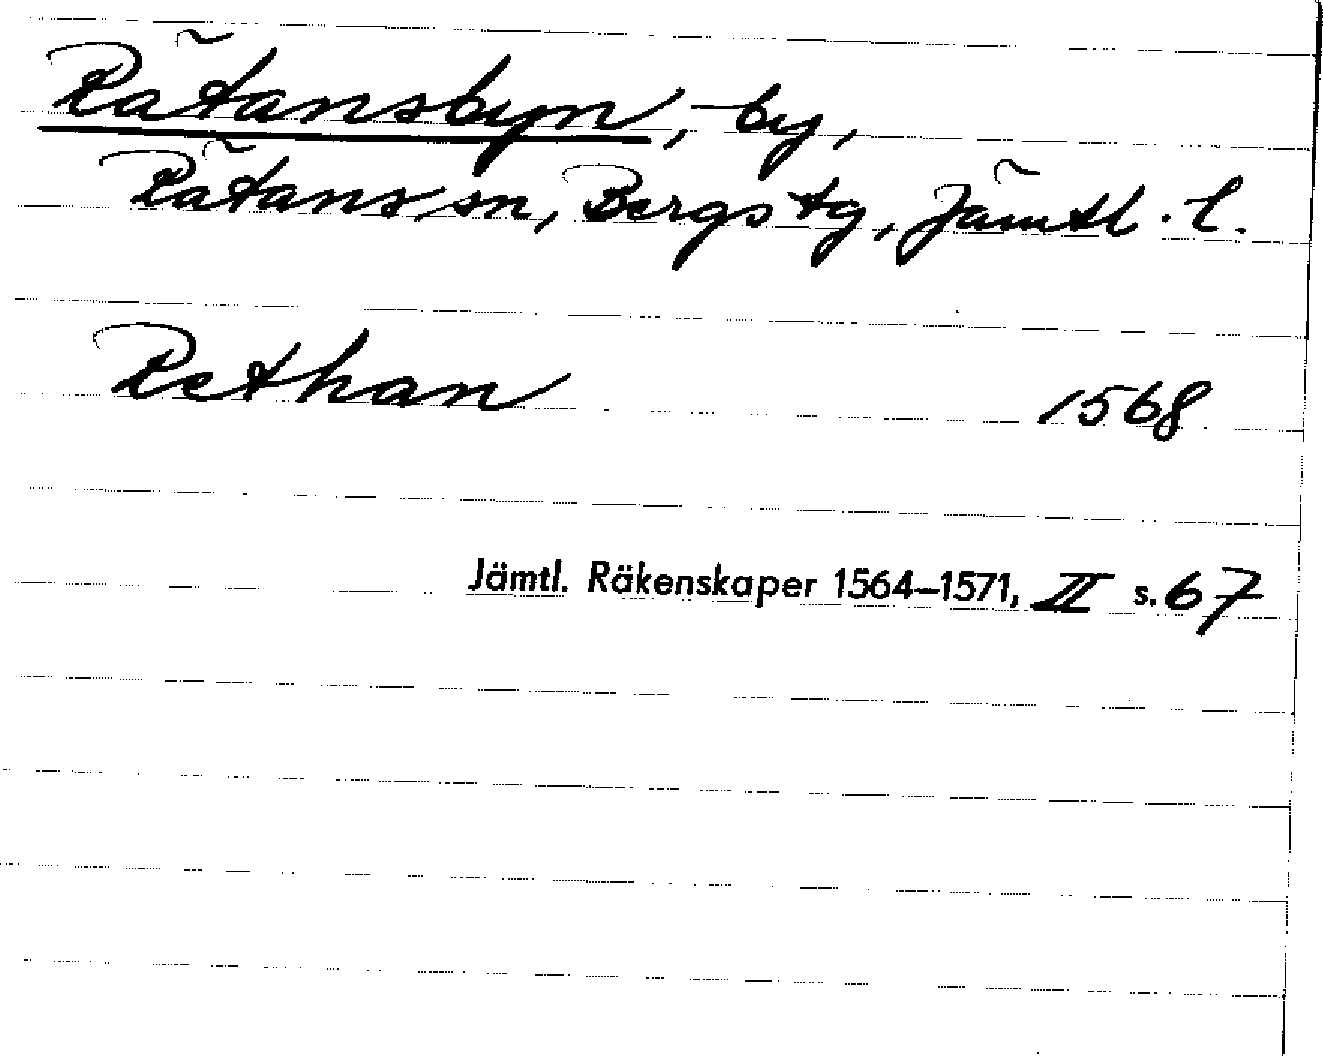 Rätansbyn, by,
Rätans sn, Bergs tg, Jämtl. l.
Rethan 1568
Jämtl. Räkenskaper 1564–1571, II s. 67